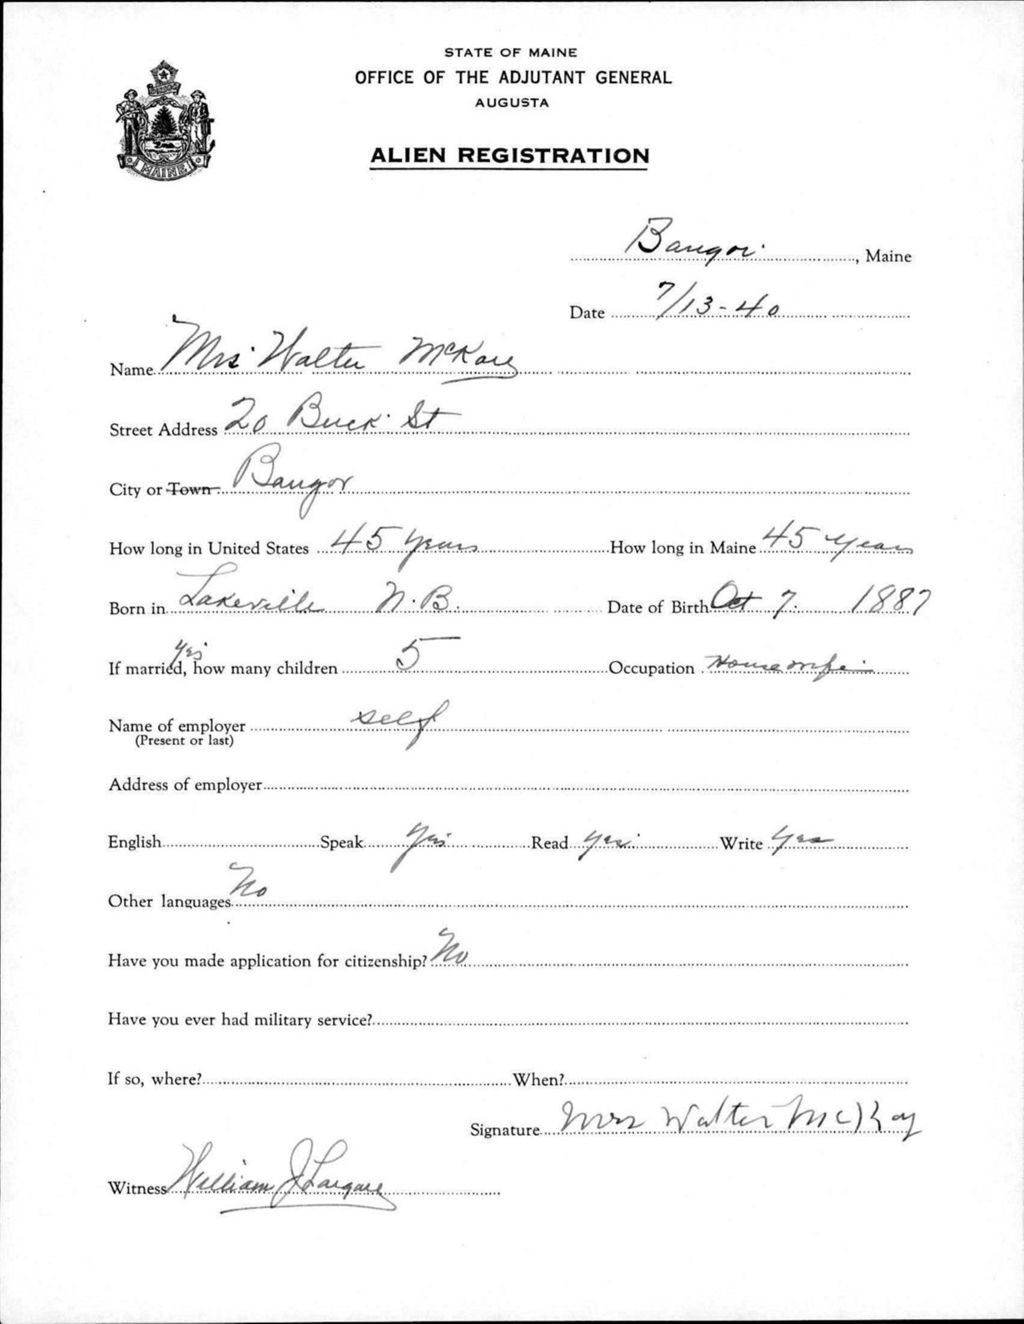 STATE OF MAINE
OFFICE OF THE ADJUTANT GENERAL
AUGUSTA
ALIEN REGISTRATION
MAINE
Bangor, Maine
Date 7/13-40
Name Mrs Walter McKay
Street Address 20 Buck St
City or Town Bangor
How long in United States 45 years How long in Maine 45 years
Born in Lakeville N.B. Date of Birth Oct 7. 1887
yes
If married, how many children 5 Occupation Housewife
Name of employer self
(Present or last)
Address of employer
English Speak Yes Read Yes Write Yes
Other languages No
Have you made application for citizenship? No
Have you ever had military service?
If so, where? When?
Signature Mrs Walter McKay
Witness William J